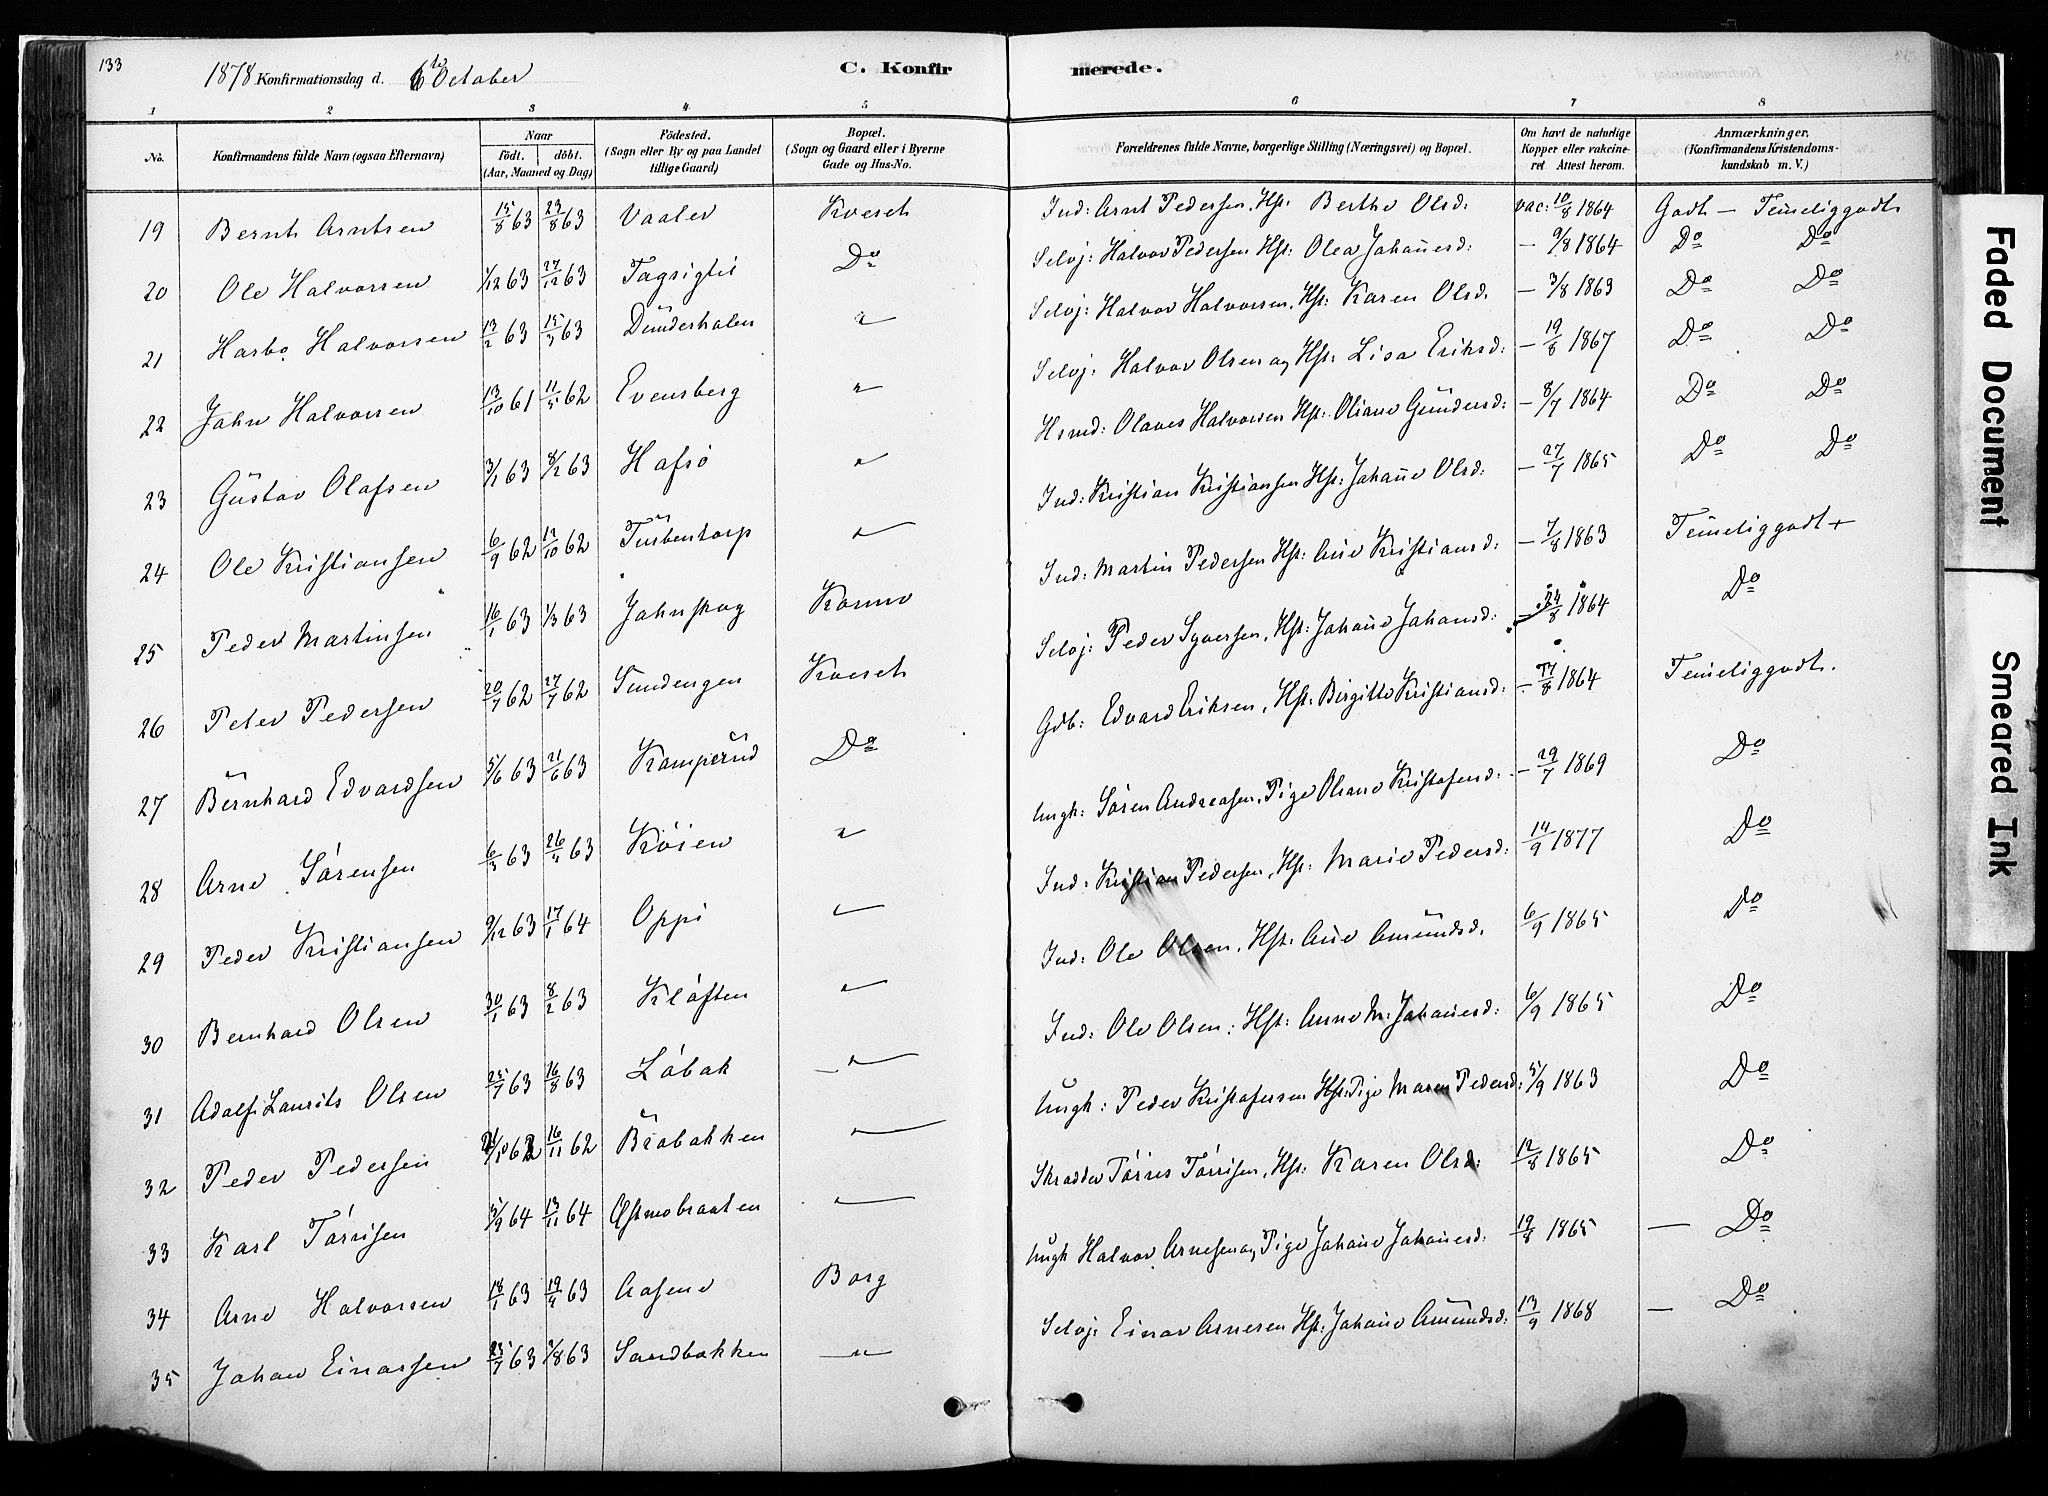 133
1878 Konfirmationsdag d. 6te October
C. Konfirmerede.
1 2 3 4 5 6 7 8
No.
Konfirmandens fulde Navn (ogsaa Efternavn)
Naar
födt. döbt.
(Aar, Maaned og Dag)
Födested.
(Sogn eller By og paa Landet
tillige Gaard)
Bopæl.
(Sogn og Gaard eller i Byerne
Gade og Hus-No.
Forældrenes fulde Navne, borgerlige Stilling (Næringsvei) og Bopæl.
Om havt de naturlige
Kopper eller vakcine-
ret Attest herom.
Anmærkninger.
(Konfirmandens Kristendoms-
kundskab m. V.)
19 Bernt Arntsen 15/8 63 23/8 63 Vaaler Ind: Arnt Pedersen, Hst: Berthe Olsd: vac: 10/8 1864 Godt — Temeliggodt
20 Ole Halvorsen 1/12 63 27/12 63 Do Selvj: Halvor Pedersen Hst: Olea Johannesd: — 9/8 1864 Do Do
21 Harbo Halvorsen 13/2 63 15/3 63 " Selvj: Halvor Halvorsen, Hst: Karen Olsd. — 3/8 1863 Do Do
22 John Halvorsen 13/10 61 11/5 62 Evensberg " Selvj: Halvor Olsen og Hst: Lisa Eriksd: — 19/8 1867 Do Do
23 Gustav Olafsen 3/1 63 8/2 63 Hafsö " Hsmd: Olaves Halvorsen Hst: Oliane Gundersd: — 8/7 1864 Do Do
24 Ole Kristiansen 6/9 62 12/10 62 " Ind: Kristian Kristiansen Hst: Johanne Olsd: — 27/7 1865 Do Do
25 Peder Martinsen 16/1 63 1/3 63 Johnskog Kormo Ind: Martin Pedersen Hst: Anne Kristiansd: — 7/8 1863 Temeliggodt +
26 Peter Pedersen 20/7 62 27/7 62 Sundengen Selvj: Peder Syversen, Hst: Johanne Johansd: — 24/8 1864 Do
27 Bernhard Edvardsen 5/6 63 21/6 63 Kamperud Do Gdb: Edvard Eriksen, Hst: Birgitte Kristiansd: — 17/8 1864 Temeliggodt.
28 Arne Sörensen 6/3 63 26/4 63 Köien " Ungk: Sören Andreasen, Pige Olsd Kristofersd: — 29/7 1869 Do
29 Peder Kristiansen 9/12 63 17/1 64 Oppi " Ind: Kristian Pedersen, Hst: Marie Pedersd: 14/9 1877 Do
30 Bernhard Olsen 30/1 63 8/2 63 Klöften " Ind: Ole Olsen, Hst: Anne Amundsd. 6/9 1865 Do
31 Adolf Laurits Olsen 25/7 63 16/8 63 Löbak " Ind: Ole Olsen, Hst: Anne M. Johannesd: 6/9 1865 Do
32 Peder Pedersen 21/10 62 16/11 62 Bröbakken " Ungk: Peder Kristofersen Pige Maren Pedersd: 5/9 1863 Do
33 Karl Törrisen 5/9 64 13/11 64 Östmobraaten " Skradder Törres Törrisen, Hst: Karen Olsd: 12/8 1865 Do
34 Arne Halvorsen 18/1 63 19/4 63 Aasene Borg Ungk Halvor Arnesen og Pige Johanne Johannesd: 19/8 1865 — Do
35 Johan Einarsen 23/7 63 2/8 63 Sandbakken " Selvj: Einar Arnesen Hst: Johanne Amundsd: 13/9 1868 — Do
Faded Document
Smeared Ink